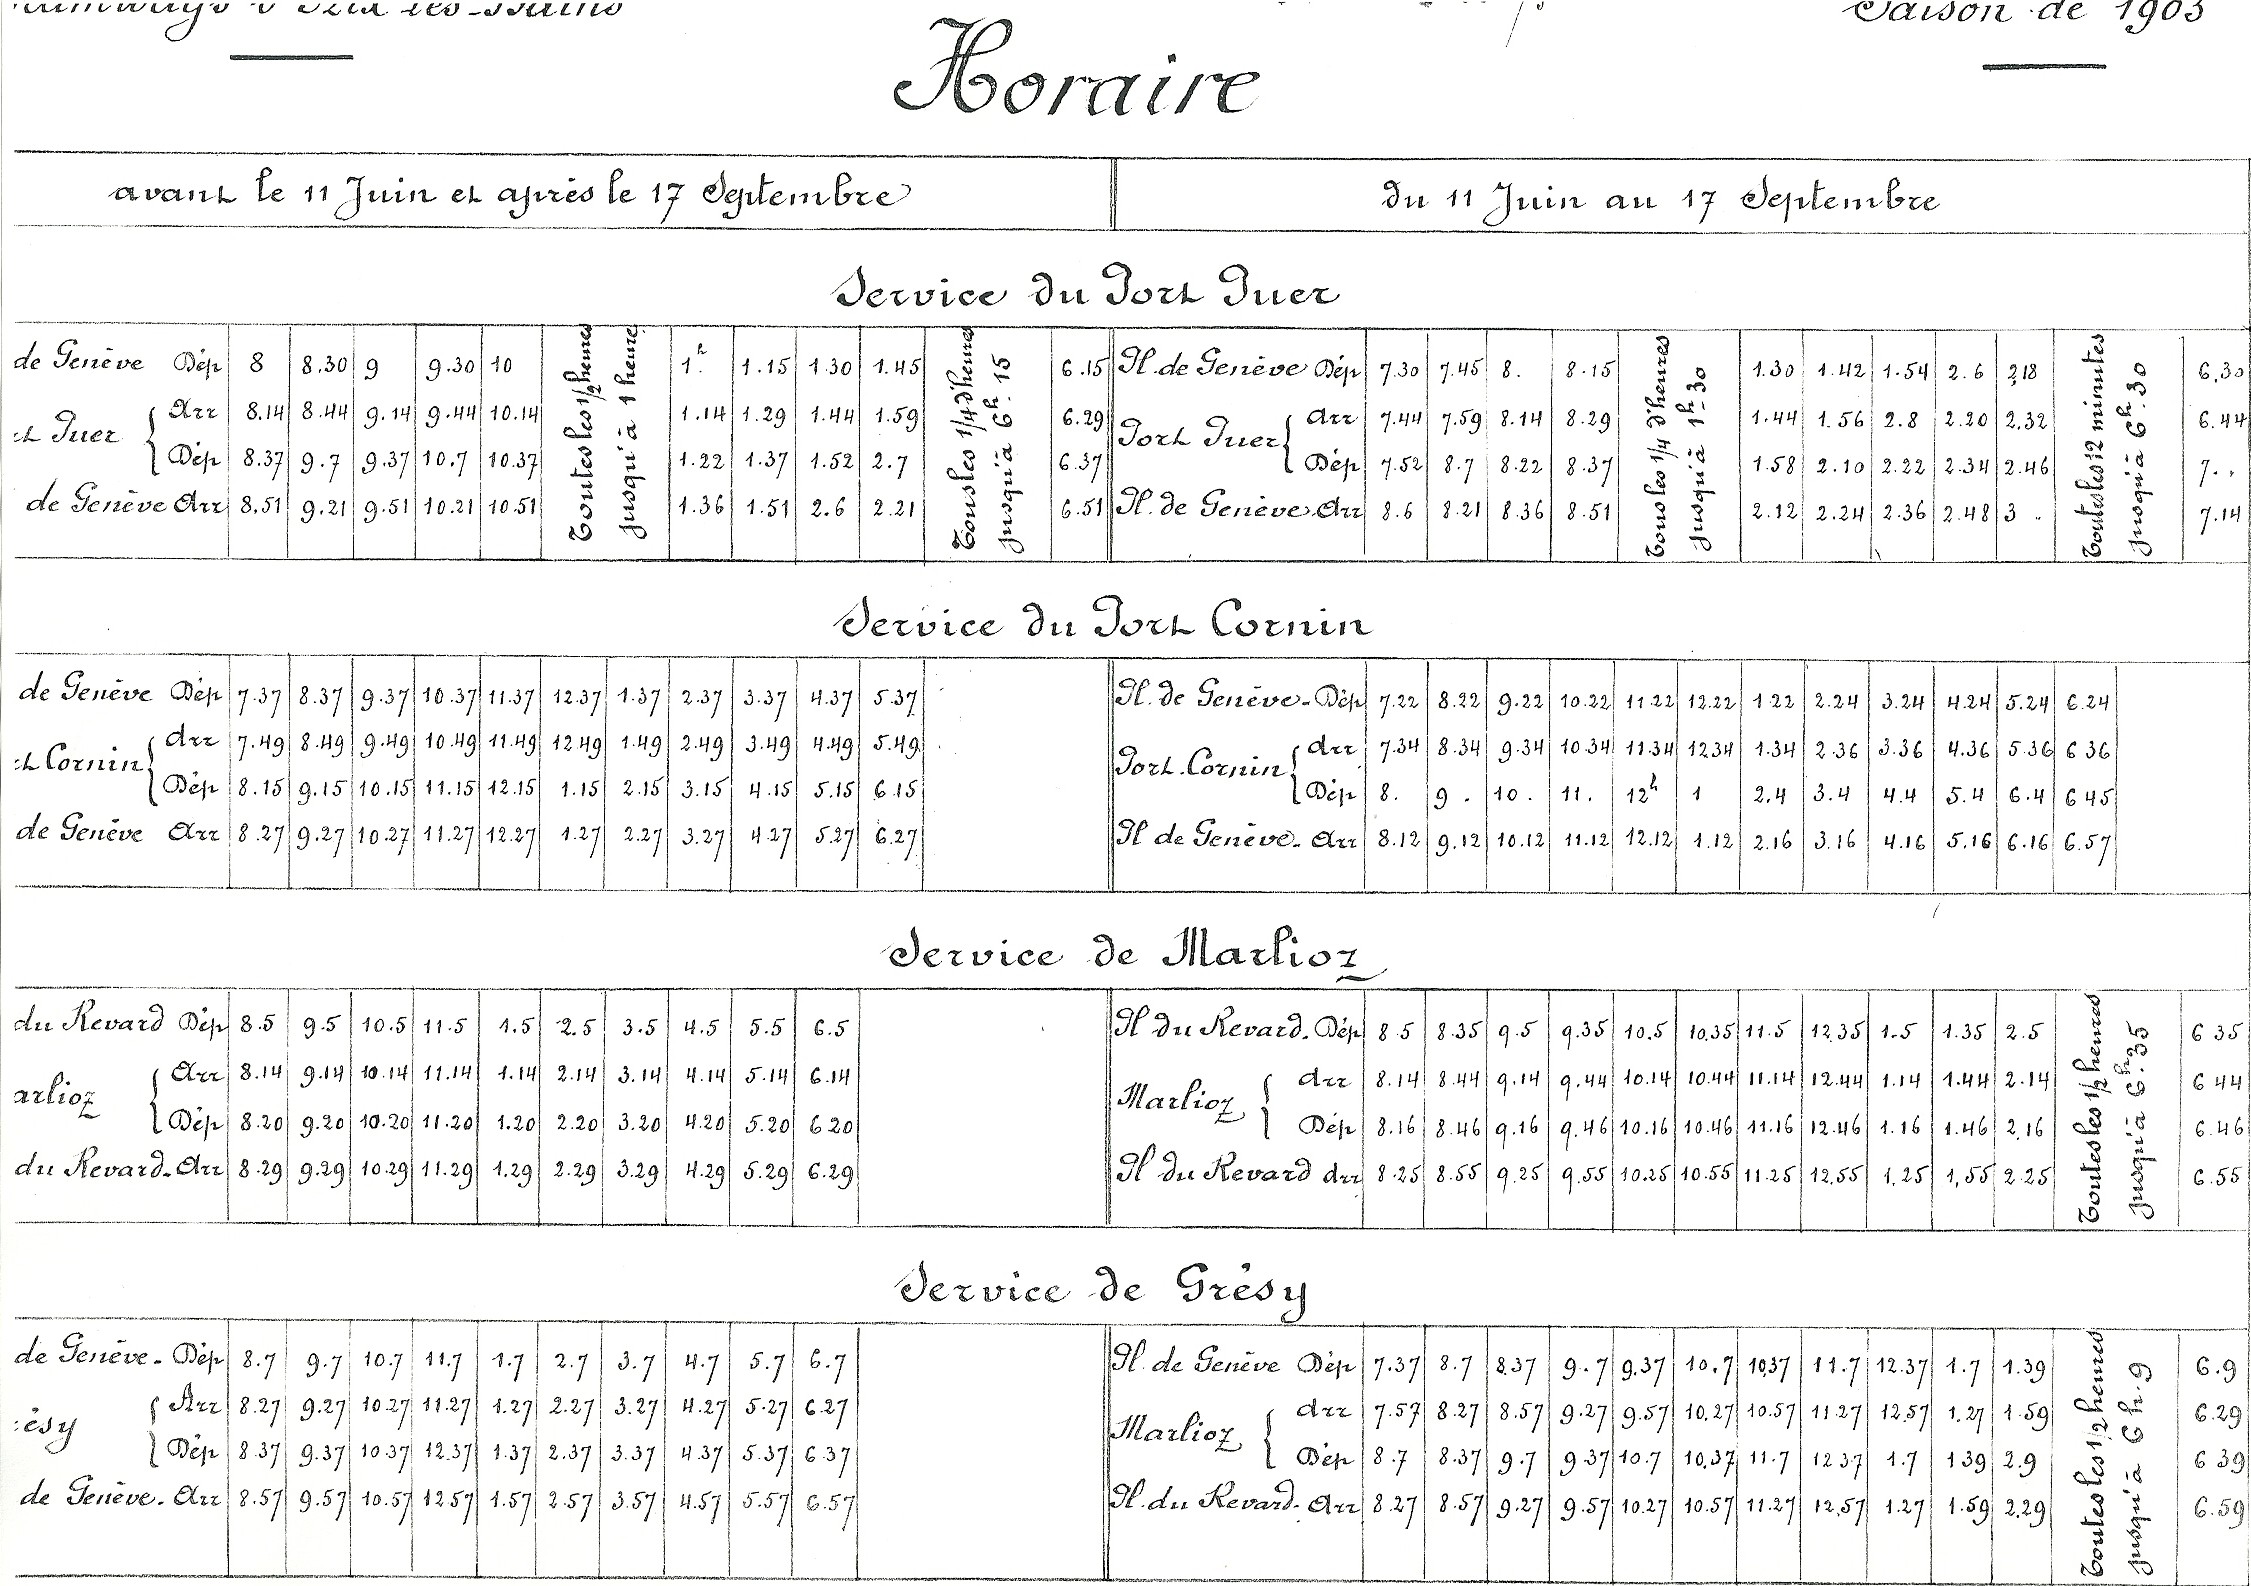 Saison de 1903
Horaire
avant le 11 Juin et après le 17 Septembre
du 11 Juin au 17 Septembre
Service du Port Puer
de Genève Dép 8 8.30 9 9.30 10 Toutes les 1/2 heures jusqu'à 1 heure 1h. 1.15 1.30 1.45 Tous les 1/4 d'heures jusqu'à 6h.15 6.15
Arr 8.14 8.44 9.14 9.44 10.14 1.14 1.29 1.44 1.59 6.29
Puer
Dép 8.37 9.7 9.37 10.7 10.37 1.22 1.37 1.52 2.7 6.37
de Genève Arr 8.51 9.21 9.51 10.21 10.51 1.36 1.51 2.6 2.21 6.51
Pl. de Genève Dép 7.30 7.45 8. 8.15 Tous les 1/4 d'heures jusqu'à 1h.30 1.30 1.42 1.54 2.6 2,18 Toutes les 12 minutes jusqu'à 6h.30 6,30
Arr 7.44 7.59 8.14 8.29 1.44 1.56 2.8 2.20 2,32 6.44
Port Puer
Dép 7.52 8.7 8.22 8.37 1.58 2.10 2.22 2.34 2.46 7..
Pl. de Genève Arr 8.6 8.21 8.36 8.51 2.12 2.24 2.36 2.48 3 . 7.14
Service du Port Cornin
de Genève Dép 7.37 8.37 9.37 10.37 11.37 12.37 1.37 2.37 3.37 4.37 5.37
Arr 7.49 8.49 9.49 10.49 11.49 12.49 1.49 2.49 3.49 4.49 5.49
Cornin
Dép 8.15 9.15 10.15 11.15 12.15 1.15 2.15 3.15 4.15 5.15 6.15
de Genève Arr 8.27 9.27 10.27 11.27 12.27 1.27 2.27 3.27 4.27 5.27 6.27
Pl. de Genève - Dép 7.22 8.22 9.22 10.22 11.22 12.22 1.22 2.24 3.24 4.24 5.24 6.24
Arr 7.34 8.34 9.34 10.34 11.34 12.34 1.34 2.36 3.36 4.36 5.36 6 36
Port Cornin
Dép 8. 9 . 10 . 11. 12h 1 2.4 3.4 4.4 5.4 6.4 6 45
Pl de Genève - Arr 8.12 9.12 10.12 11.12 12.12 1.12 2.16 3.16 4.16 5.16 6.16 6.57
Service de Marlioz
du Revard Dép 8.5 9.5 10.5 11.5 1.5 2.5 3.5 4.5 5.5 6.5
Arr 8.14 9.14 10.14 11.14 1.14 2.14 3.14 4.14 5.14 6.14
arlioz
Dép 8.20 9.20 10.20 11.20 1.20 2.20 3.20 4.20 5.20 6 20
du Revard - Arr 8.29 9.29 10.29 11.29 1.29 2.29 3.29 4.29 5.29 6.29
Pl du Revard - Dép 8 5 8.35 9.5 9.35 10.5 10.35 11.5 12.35 1.5 1.35 2.5 Toutes les 1/2 heures jusqu'à 6h.35 6 35
Arr 8.14 8.44 9.14 9.44 10.14 10.44 11.14 12.44 1.14 1.44 2.14 6 44
Marlioz
Dép 8.16 8.46 9.16 9.46 10.16 10.46 11.16 12.46 1.16 1.46 2,16 6.46
Pl du Revard Arr 8.25 8.55 9.25 9.55 10.25 10.55 11.25 12,55 1,25 1,55 2.25 6.55
Service de Grésy
de Genève - Dép 8.7 9.7 10.7 11.7 1.7 2.7 3.7 4.7 5.7 6.7
Arr 8.27 9.27 10.27 11.27 1.27 2.27 3.27 4.27 5.27 6.27
ésy
Dép 8.37 9.37 10.37 12.37 1.37 2.37 3.37 4.37 5.37 6 37
de Genève - Arr 8.57 9.57 10.57 12 57 1.57 2.57 3.57 4.57 5.57 6.57
Pl. de Genève Dép 7.37 8.7 8.37 9.7 9,37 10.7 10,37 11.7 12.37 1.7 1.39 Toutes les 1/2 heures jusqu'à 6 h.9 6.9
Arr 7.57 8.27 8.57 9.27 9.57 10,27 10.57 11.27 12,57 1.27 1.59 6.29
Marlioz
Dép 8.7 8.37 9.7 9 37 10.7 10,37 11.7 12 37 1.7 1 39 2.9 6 39
Pl. du Revard - Arr 8.27 8.57 9.27 9.57 10.27 10.57 11.27 12,57 1.27 1.59 2,29 6.59